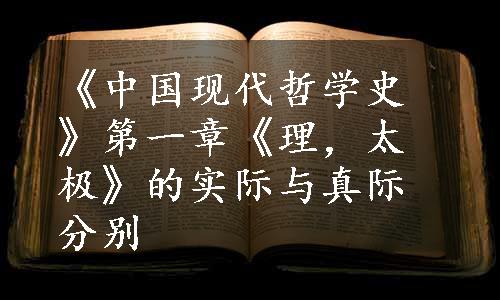 《中国现代哲学史
》第一章《理，太
极》的实际与真际
分别